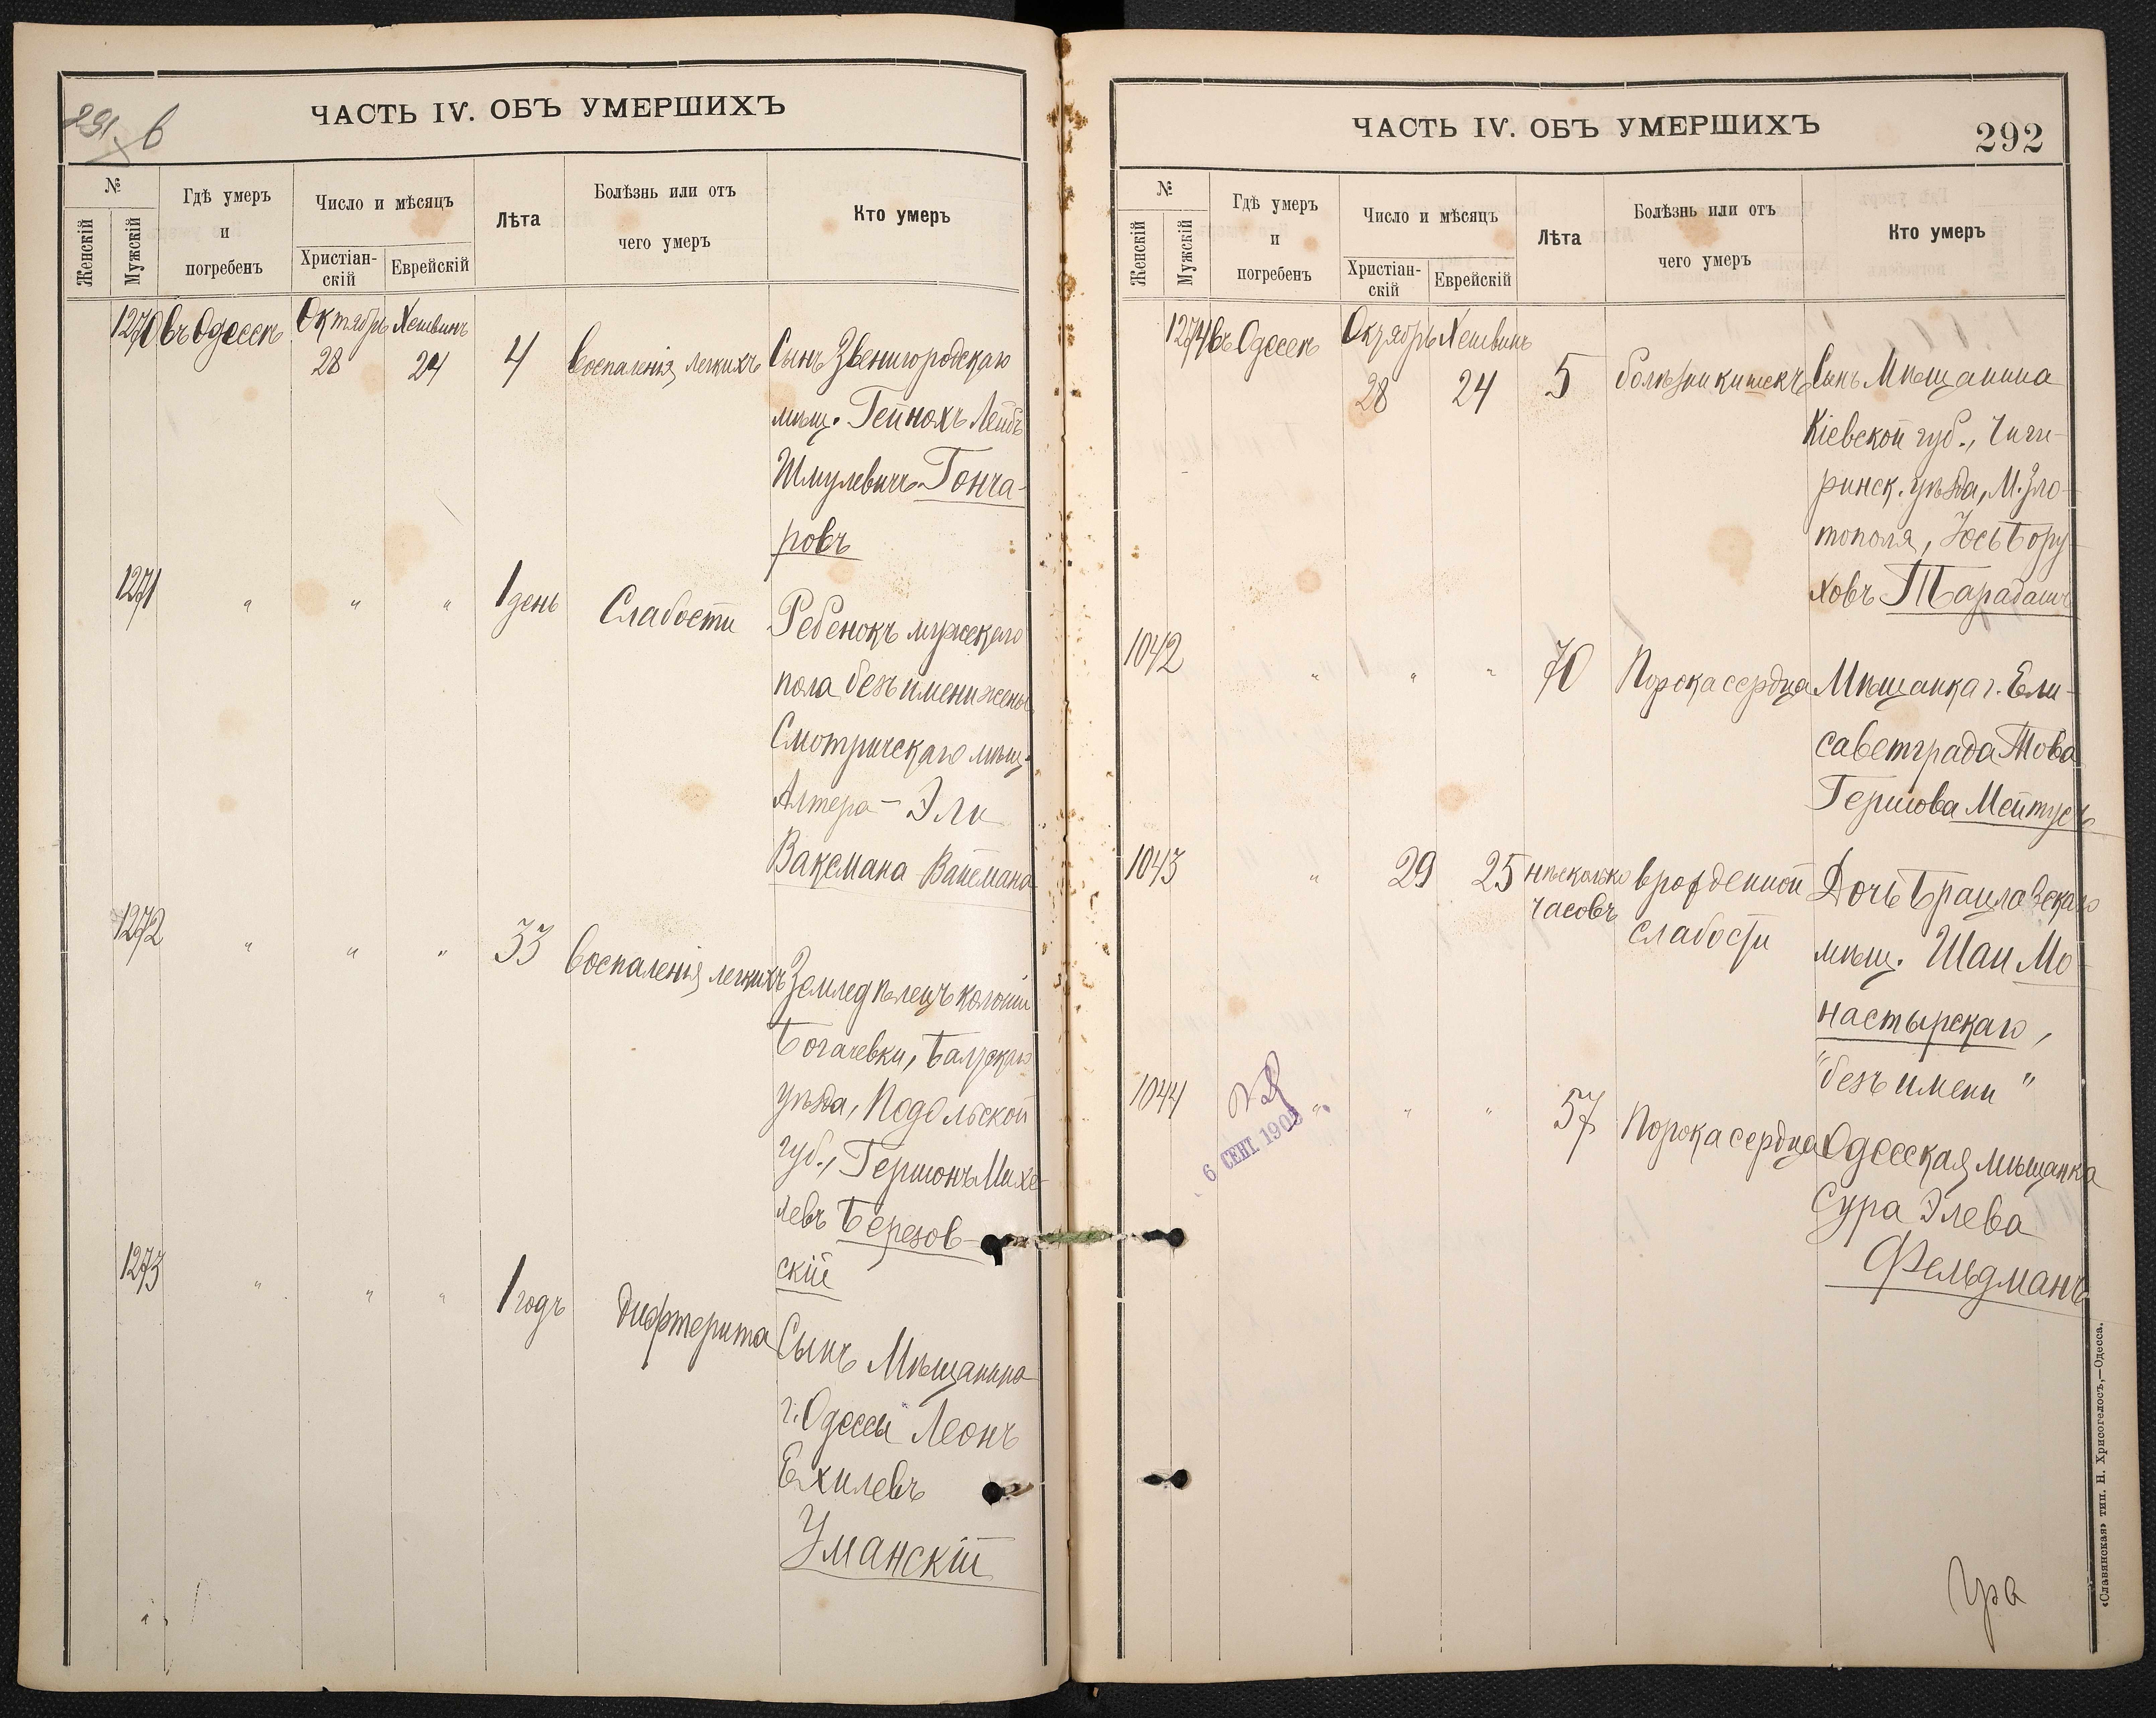 291 в
ЧАСТЬ IV. ОБЪ УМЕРШИХЪ
№
Женскій
Мужскій
Гдѣ умеръ
и
погребенъ
Число и мѣсяцъ
Христіан-
скій
Еврейскій
Лѣта
Болѣзнь или отъ
чего умеръ
Кто умеръ
1270 въ Одессѣ Октябрь 28 Хешвинъ 24 4 воспаленія легкихъ Сынъ Звенигородскаго
мѣщ. Гейнохъ Лейбъ
Шмулевичъ Гонча-
ровъ
1271 " " " 1 день Слабости Ребенокъ мужскаго
пола безъ имени жены
Смотричскаго мѣщ.
Алтера - Эли
Ваксмана Вайсмана
1272 " " " 33 воспаленія легкихъ Земледѣлецъ колоніи
Богачевки, Балтскаго
уѣзда, Подольской
губ., Гершонъ Михе-
левъ Березов-
скій
1273 " " " 1 годъ дифтерита Сынъ Мѣщанина
г. Одессы Леонъ
Ехилевъ
Уманскій
ЧАСТЬ IV. ОБЪ УМЕРШИХЪ
292
№
Женскій
Мужскій
Гдѣ умеръ
и
погребенъ
Число и мѣсяцъ
Христіан-
скій
Еврейскій
Лѣта
Болѣзнь или отъ
чего умеръ
Кто умеръ
1274 въ Одессѣ Октябрь 28 Хешвинъ 24 5 болѣзни кишекъ Сынъ Мѣщанина
Кіевской губ., Чиги-
ринск. уѣзда, М. Зло-
тополя, Іось Бору-
ховъ Тарадашъ
1042 " " " 70 Порока сердца Мѣщанка г. Ели-
саветграда Това
Гершова Мейтусъ
1043 " 29 25 нѣсколько
часовъ врожденной
слабости Дочь Брацлавскаго
мѣщ. Шаи Мо-
настырскаго,
"безъ имени"
1044 " " " 57 Порока сердца Одесская мѣщанка
Сура Элева
Фельдманъ
6 СЕНТ 190
«Славянская» тип. Н. Хрисогелосъ,—Одесса.